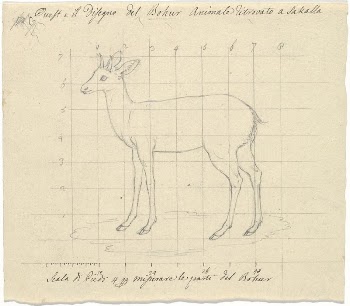 Quest è il Disegno del Bohur Animale Ritrovato a Sakalla
5 6 7 8
7
5
4
3
Scala di Piedi misurare le parti del Bohur